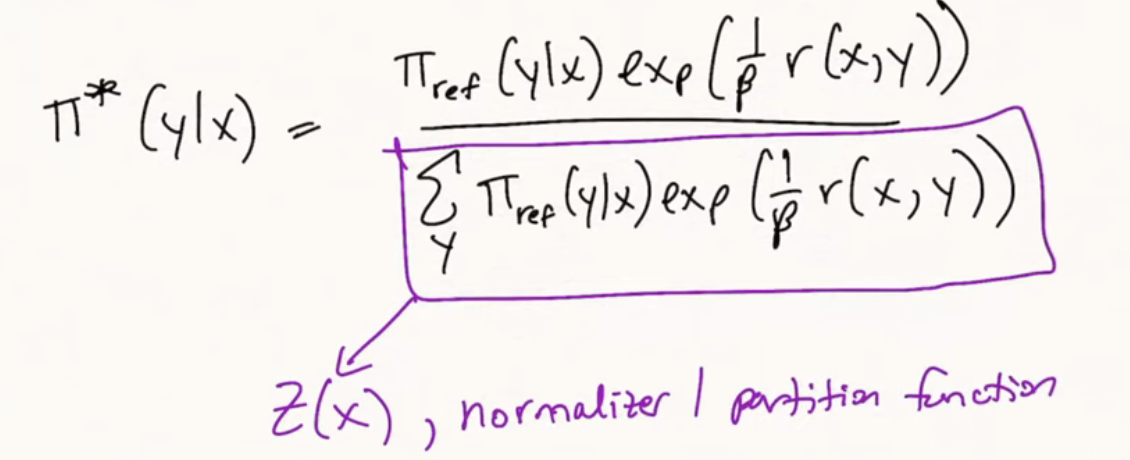 π*(y|x) = π_ref(y|x) exp(1/β r(x,y))
Σ_y π_ref(y|x) exp(1/β r(x,y))
Z(x), normalizer / partition function